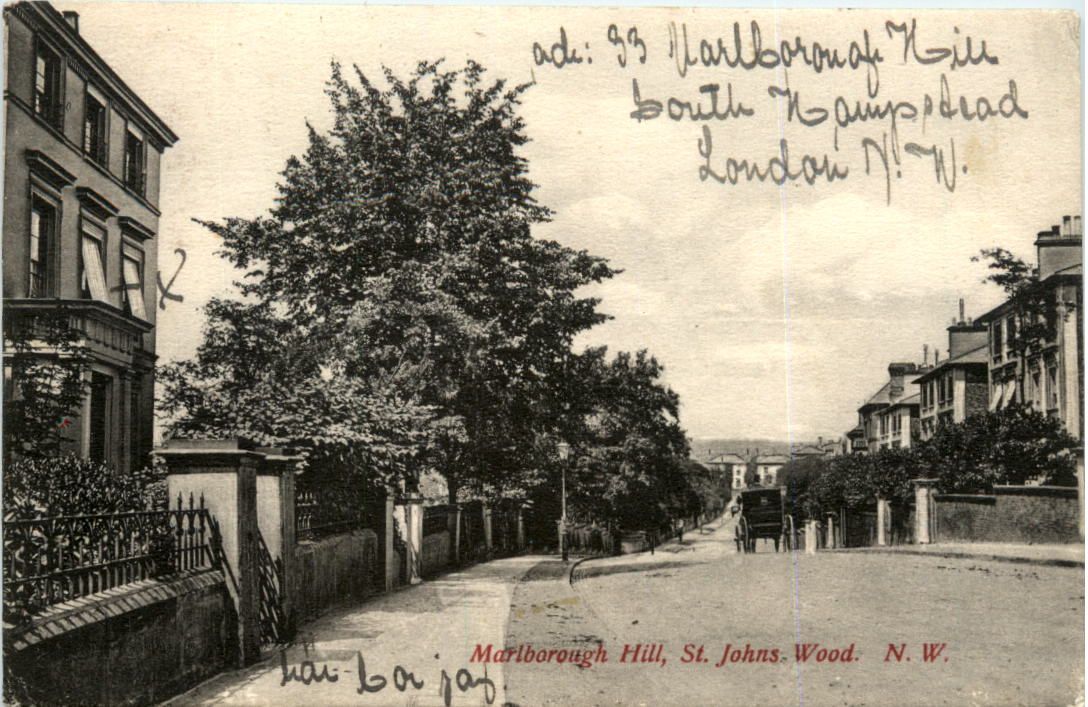 ade: 33 Marlborough Hill
South Hampstead
London N. W.
X
Marlborough Hill, St. Johns Wood. N. W.